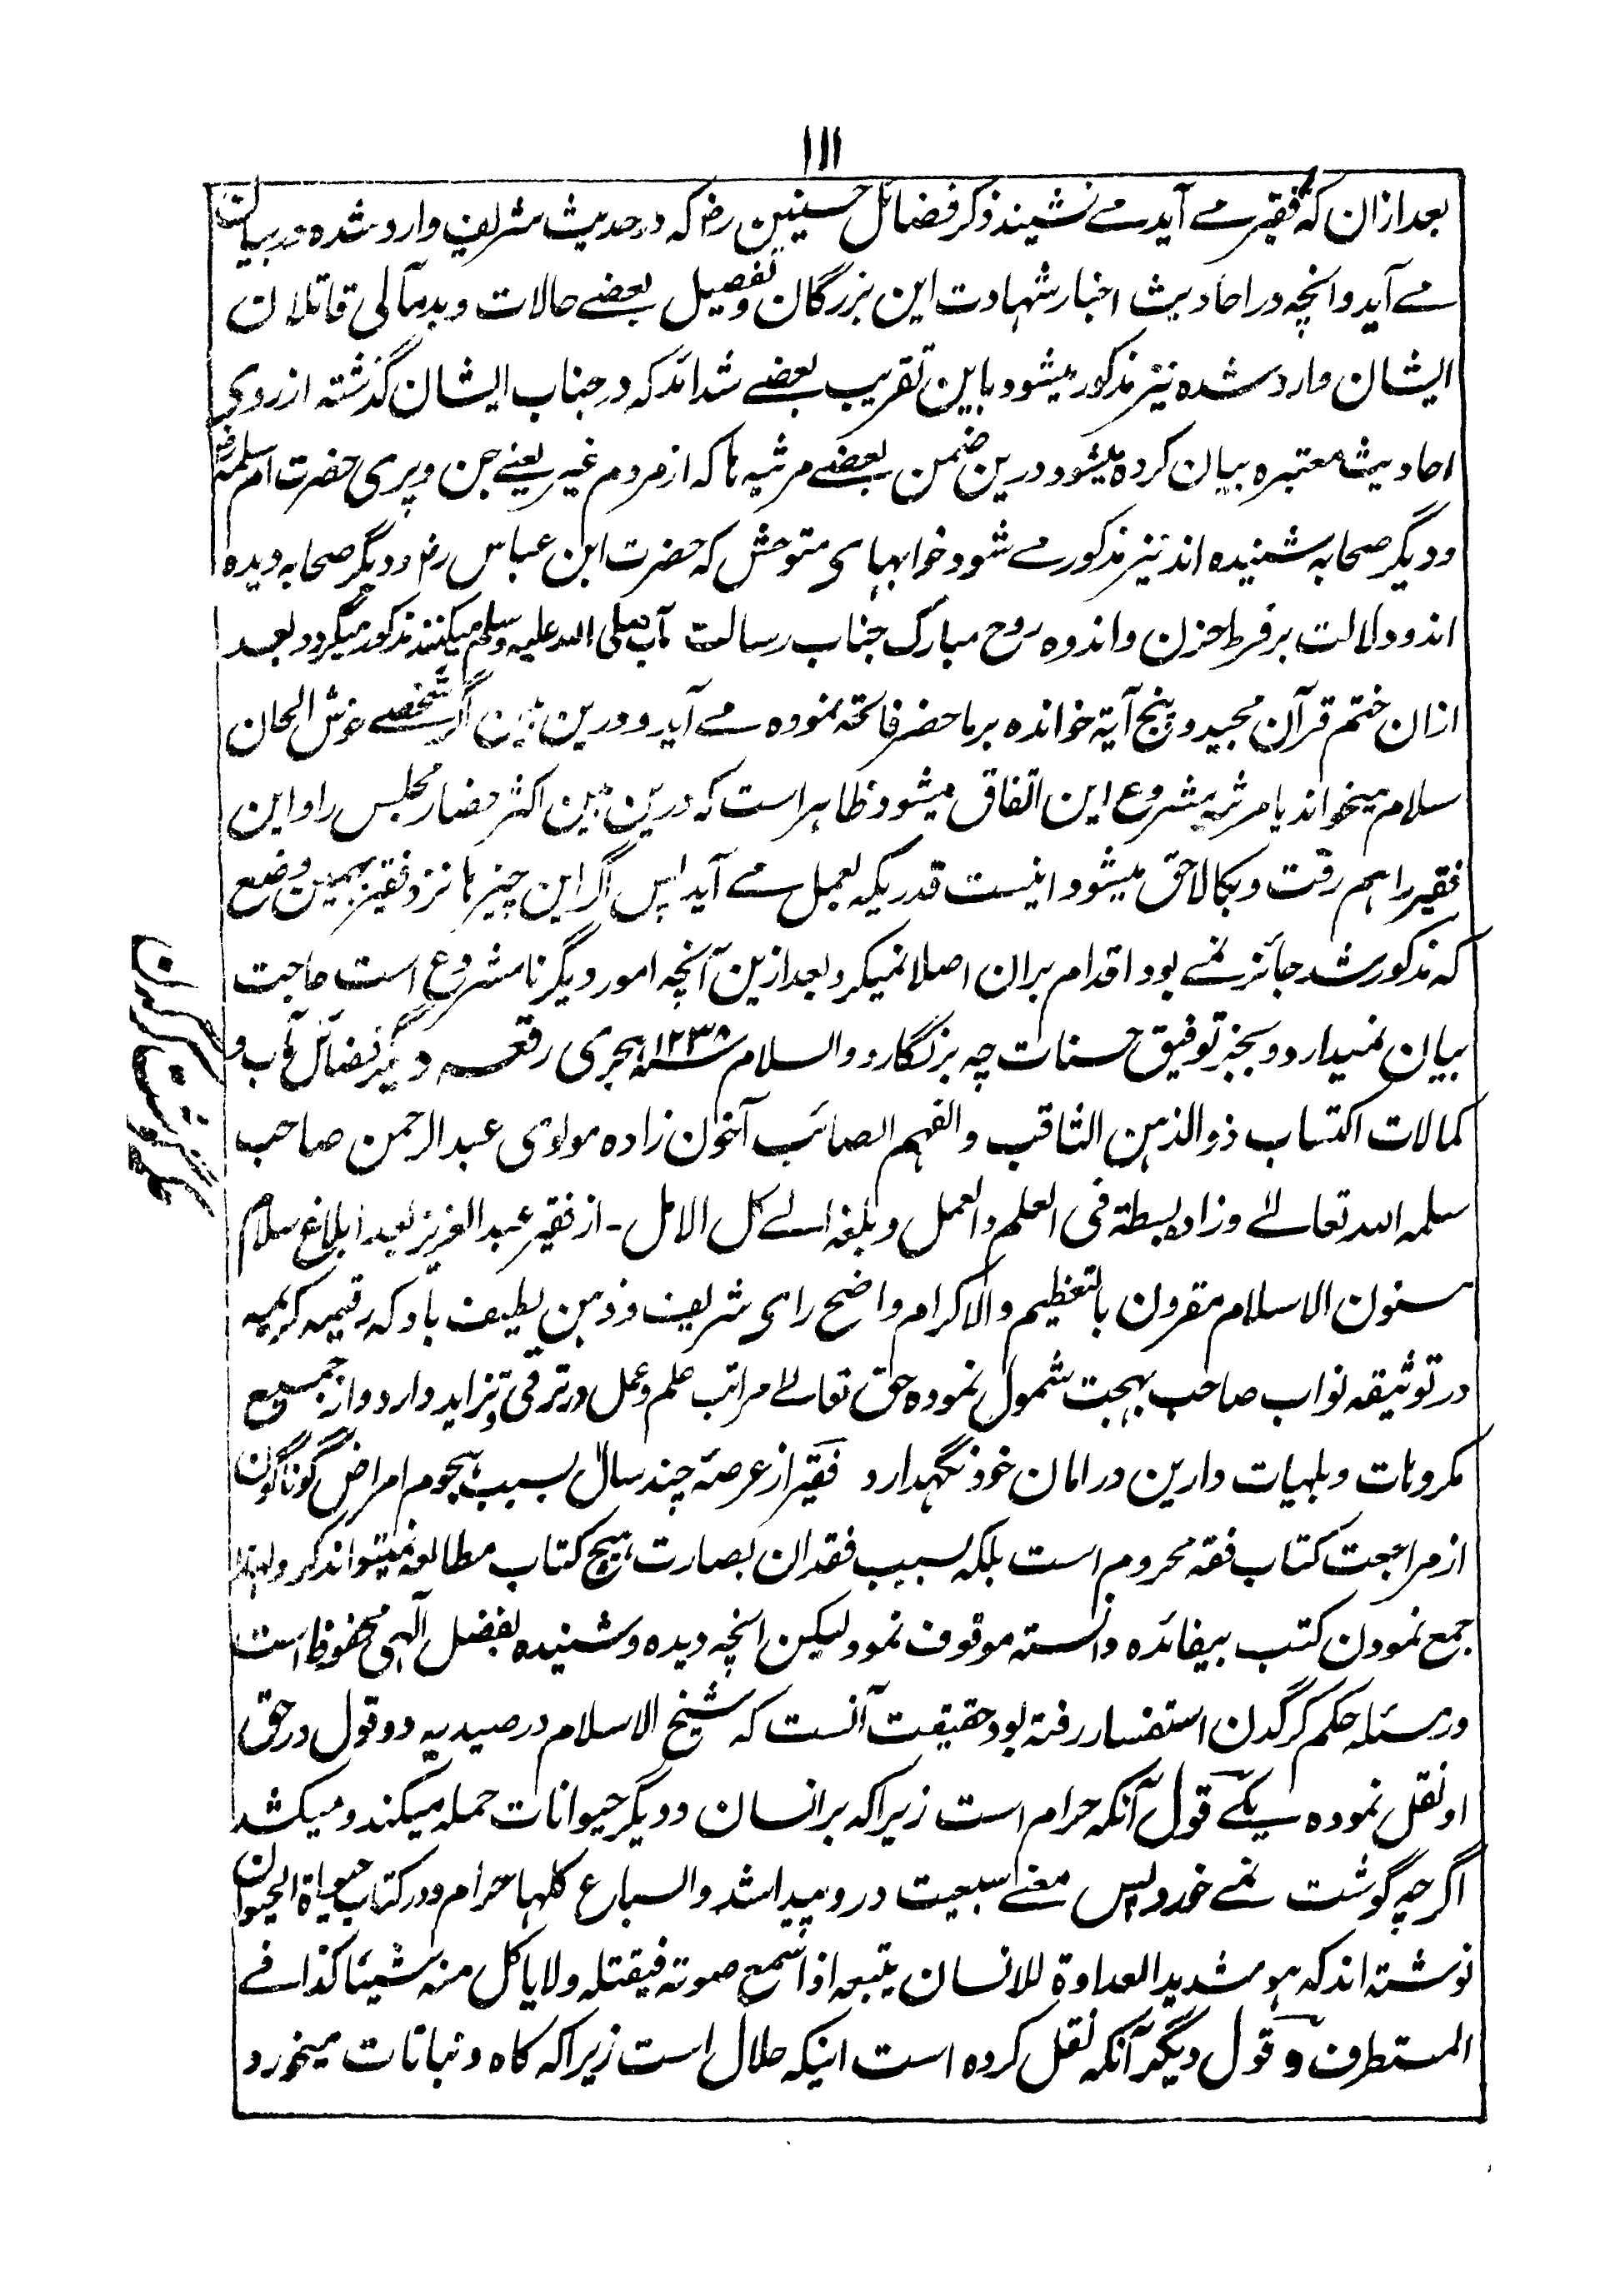 ١١١
بعد ازان که فقیر مے آید مے نشیند ذکر فضائل حسنین رض که در حدیث شریف وارد شده در بیان
مے آید و انچه در احادیث اخبار شهادت این بزرگان و تفصیل بعضے حالات و بدمآلی قاتلان
ایشان وارد شده نیز مذکور میشود باین تقریب بعضے شدائد که در جناب ایشان گذشته از روی
احادیث معتبره بیان کرده میشود درین ضمن بعضے مرثیه ها که از مردم غیر یعنے جن و پری حضرت ام سلمه رض
و دیگر صحابه شنیده اند نیز مذکور مے شود خوابهای متوحش که حضرت ابن عباس رض و دیگر صحابه دیده
اند و دلالت بر فرط حزن و اندوه روح مبارک جناب رسالت مآب صلی الله علیه وسلم میکنند مذکور میگردد بعد
ازان ختم قرآن مجید و پنج آیة خوانده بر ما حضر فاتحه نموده مے آید و درین بین اگر شخصے خوش الحان
سلام میخواند یا مرثیه مشروع این اتفاق میشود ظاهر است که درین بین اکثر حضار مجلس را و این
فقیر را هم رقت و بکا لاحق میشود اینست قدریکه بعمل مے آید پس اگر این چیز ها نزد فقیر بهمین وضع
که مذکور شد جائز نمے بود اقدام بران اصلا نمیکرد بعد ازین آنچه امور دیگر نامشروع است حاجت
بیان نمیدارد و بجز توفیق حسنات چه بر نگارد والسلام سنه ١٢٣٨ هجری رقعه دیگر فضائل مآب و
کمالات اکتساب ذوالذهن الثاقب والفهم الصائب آخون زاده مولوی عبدالرحمن صاحب
سلمه الله تعالے وزاده بسطة فی العلم والعمل وبلغه الے کل الامل - از فقیر عبد العزیز بعد ابلاغ سلام
مسنون الاسلام مقرون بالتعظیم والاکرام واضح رای شریف و ذهن لطیف باد که رقیمه کریمه
در توثیقه نواب صاحب بهجت شمول نموده حق تعالے مراتب علم و عمل در ترقی و تزاید دارد و از جمیع
مکروهات و بلیات دارین در امان خود نگهدارد فقیر از عرصه چند سال بسبب هجوم امراض گوناگون
از مراجعت کتاب فقه محروم است بلکه بسبب فقدان بصارت هیچ کتاب مطالعه نمیتواند کرد و لهذا
جمع نمودن کتب بیفائده دانسته موقوف نمود لیکن انچه دیده و شنیده بفضل آلهی محفوظ است
در مسئله حکم کرگدن استفسار رفته بود حقیقت آنست که شیخ الاسلام در صیدیه دو قول در حق
او نقل نموده یکے قول آنکه حرام است زیراکه بر انسان و دیگر حیوانات حمله میکند و میکشد
اگر چه گوشت نمے خورد پس معنے سبعیت درو پیدا شد والسباع کلها حرام و در کتاب حیاة الحیوان
نوشته اند که هو شدید العداوة للانسان یتبعه اذا سمع صوته فیقتله ولا یاکل منه شیئا کذا فے
المستطرف و قول دیگر آنکه نقل کرده است اینکه حلال است زیراکه کاه و نباتات میخورد